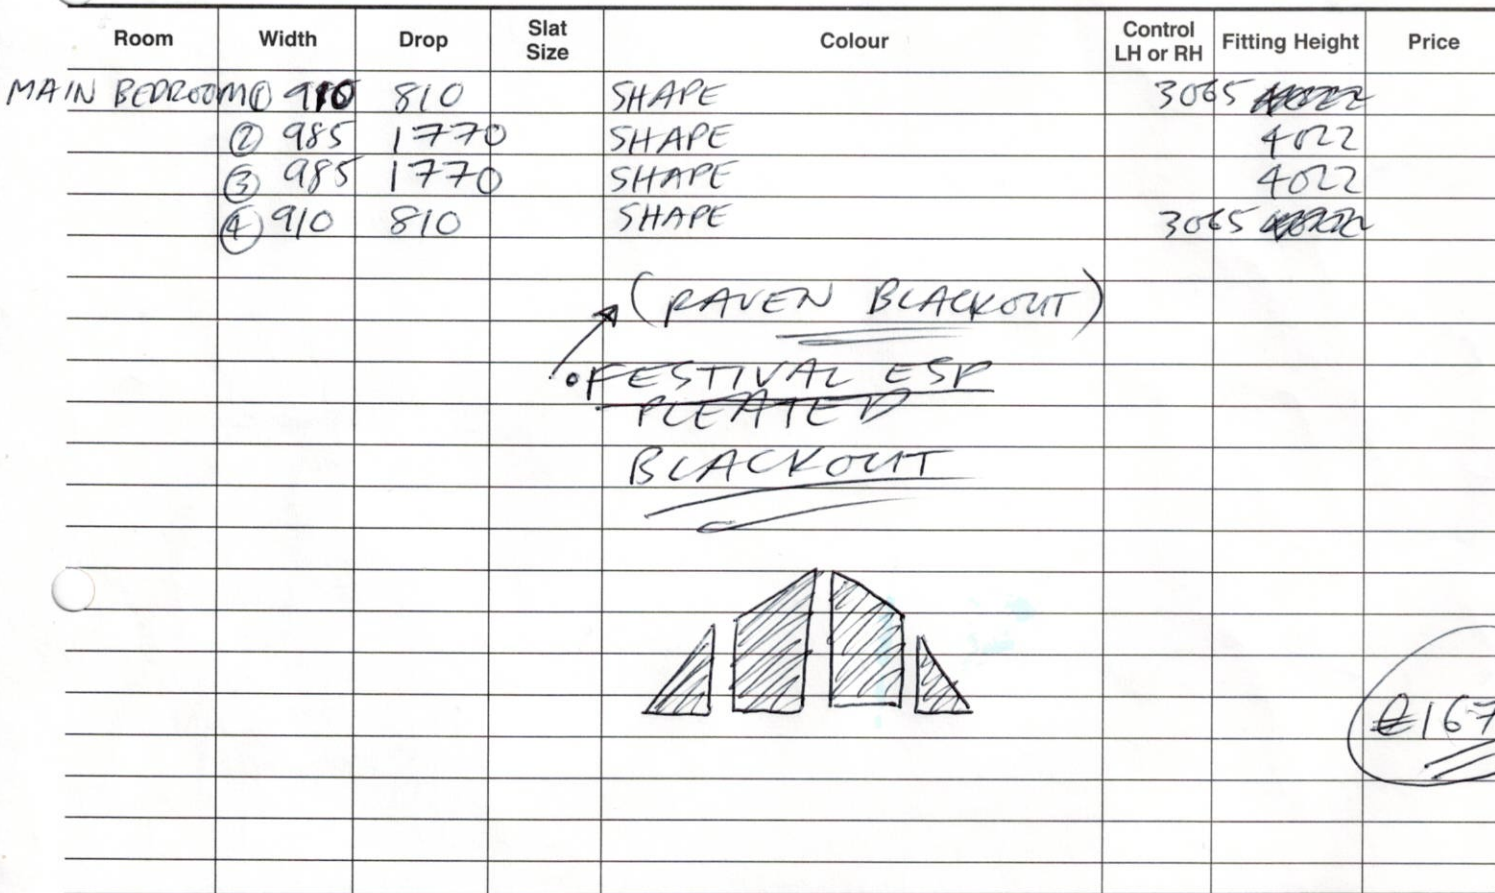 Room Width Drop Slat Size Colour Control LH or RH Fitting Height Price
MAIN BEDROOM ① 910 810 SHAPE 3065
② 985 1770 SHAPE 4022
③ 985 1770 SHAPE 4022
④ 910 810 SHAPE 3065
(RAVEN BLACKOUT)
FESTIVAL ESP
PLEATED
BLACKOUT
£167